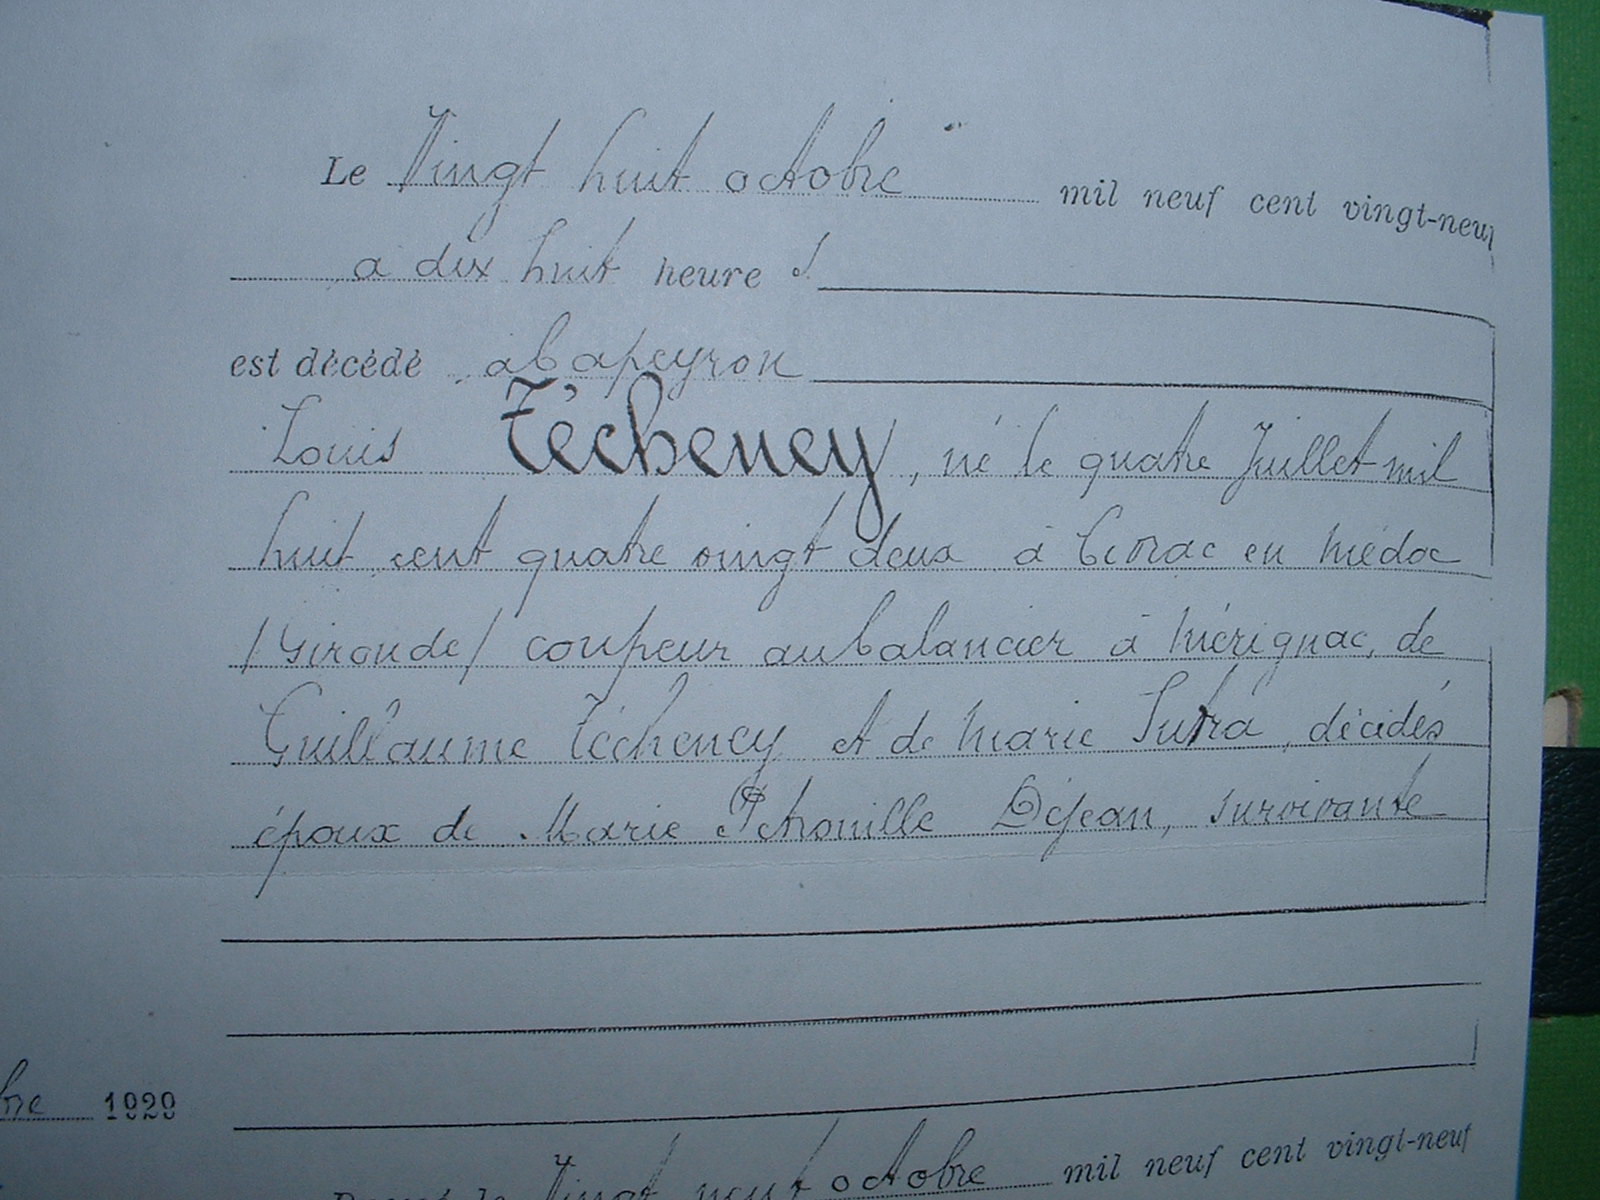 Le Vingt huit octobre mil neuf cent vingt-neuf
à dix huit heure s
est décédé à Capeyron
Louis Técheney, né le quatre Juillet mil
huit cent quatre vingt deux à Civrac en Médoc
/Gironde/ coupeur au balancier à Mérignac, de
Guillaume Técheney et de Marie Sutra, décédés
époux de Marie Pétronille Déjean, survivante
bre 1929
Vingt neuf octobre mil neuf cent vingt-neuf